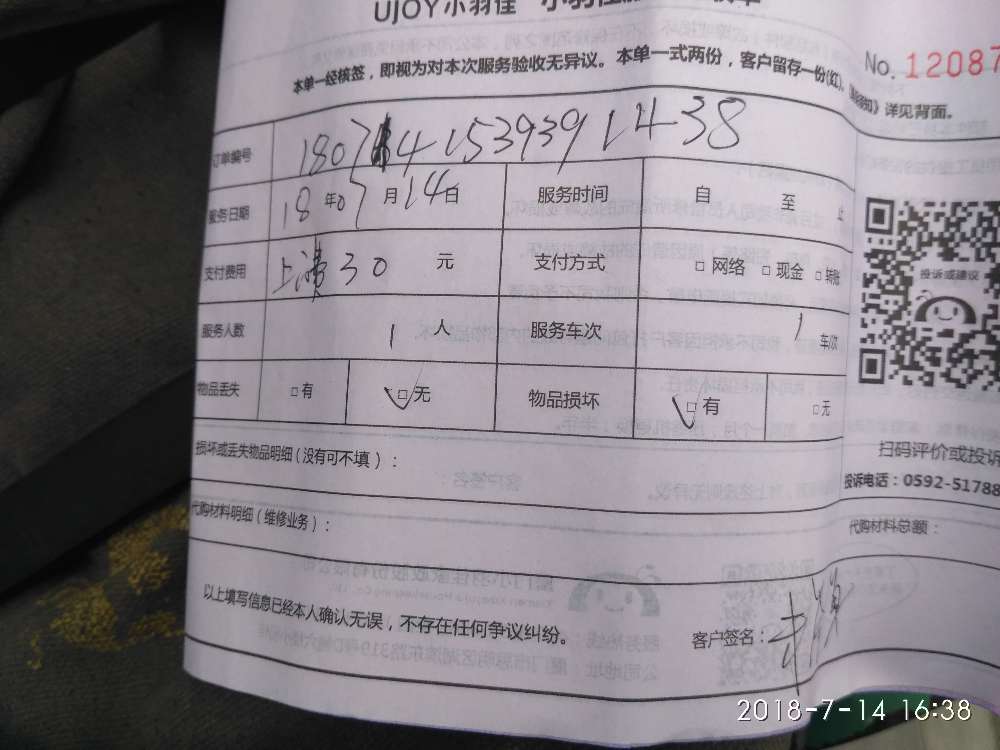 UJOY小羽佳
No. 12087
本单一经核签，即视为对本次服务验收无异议。本单一式两份，客户留存一份(红)。
详见背面。
订单编号 1807 4153939 1438
服务日期 18年07月14日 服务时间 自 至 止
支付费用 上 30 元 支付方式 □网络 □现金 □转账
服务人数 1人 服务车次 1 车/次
物品丢失 □有 □无 物品损坏 □有 □无
投诉或建议
扫码评价或投诉
投诉电话：0592-51788
损坏或丢失物品明细（没有可不填）：
代购材料明细（维修业务）： 代购材料总额：
以上填写信息已经本人确认无误，不存在任何争议纠纷。 客户签名：
2018-7-14 16:38